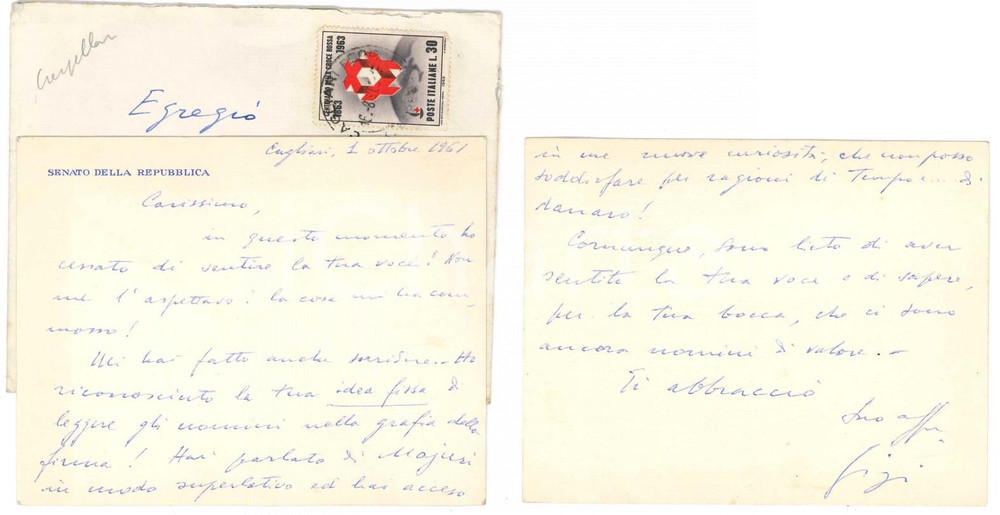 Crespellani
Egregio
CENTENARIO DELLA CROCE ROSSA
1863 1963
POSTE ITALIANE L. 30
Cagliari, 1 ottobre 1961
SENATO DELLA REPUBBLICA
Carissimo,
in questo momento ho
cessato di sentire la tua voce! Non
me l'aspettavo: la cosa mi ha com,
mosso!
Mi hai fatto anche sorridere.. Ho
riconosciuto la tua idea fissa di
leggere gli uomini nella grafia della
firma! Hai parlato di Majesi
in modo superlativo ed hai acceso
in me nuove curiosità, che non posso
soddisfare per ragioni di tempo e.... di
danaro!
Comunque, sono lieto di aver
sentito la tua voce e di sapere,
per la tua bocca, che ci sono
ancora uomini di valore. -
Ti abbraccio
Suo aff.
Gigi